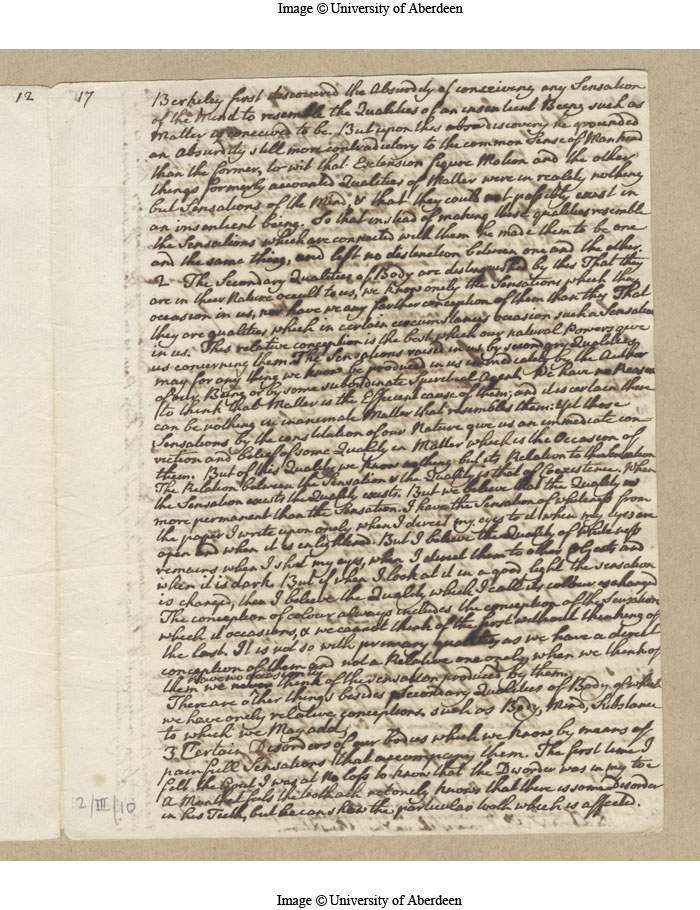 Image © University of Aberdeen
12
17
Berkeley first discovered the Absurdity of conceiving any Sensation
of the Mind to resemble the Qualities of an insentient Being such as
Matter is conceived to be. But upon this discovery he grounded
an absurdity still more contradictory to the common Sense of Mankind
than the former, to wit that Extension figure Motion and the other
things formerly accounted Qualities of Matter were in reality nothing
but Sensations of the Mind, & that they could not possibly exist in
an insentient being. So that instead of making these qualities resemble
the Sensations which are connected with them he made them to be one
and the same thing, and left no distinction between one and the other.
2 The Secondary Qualities of Body are distinguished by this That they
are in their Nature occult to us, we know only the Sensations which they
occasion in us, nor have we any farther conception of them than this That
they are qualities which in certain circumstances occasion such a Sensation
in us. This relative conception is the best which our natural Powers give
us concerning them. The Sensations raised in us by secondary Qualities
may for any thing we know be produced in us immediately by the Author
of our Being or by some subordinate Spiritual Agent. We have no Reason
to think that Matter is the Efficient cause of them; and it is certain there
can be nothing in inanimate Matter that resembles them. Yet these
Sensations by the constitution of our Nature give us an immediate con-
viction and belief of some Quality in Matter which is the Occasion of
them. But of this Quality we know nothing but its Relation to the Sensation
The Relation between the Sensation & the Quality is that of Coexistence. When
the Sensation exists the Quality exists. But we believe that the Quality is
more permanent than the Sensation. I have the Sensation of whiteness from
the paper I write upon only when I direct my eyes to it when my eyes are
open and when it is enlightened. But I believe the Quality of whiteness
remains when I shut my eyes, when I direct them to other Objects and
when it is dark. But if when I look at it in a good light the Sensation
is changed, then I believe the Quality which I call its colour is changed
The conception of colour always includes the conception of the Sensation
which it occasions, & we cannot think of the first without thinking of
the last. It is not so with primary qualities, as we have a direct
conception of them and not a Relative one only, when we think of
have no occasion to
them we never think of the sensation produced by them.
There are other things besides Secondary Qualities of Body of which
we have only relative conceptions, such as Body, Mind, Substance
to which we May add,
3 Certain Disorders of our bodies which we know by means of
painfull Sensations that accompany them. The first time I
felt the Gout I was at no loss to know that the Disorder was in my toe
A Man that feels the toothach not only knows that there is some Disorder
in his Teeth, but he can show the particular tooth which is affected.
2/III/10
Image © University of Aberdeen